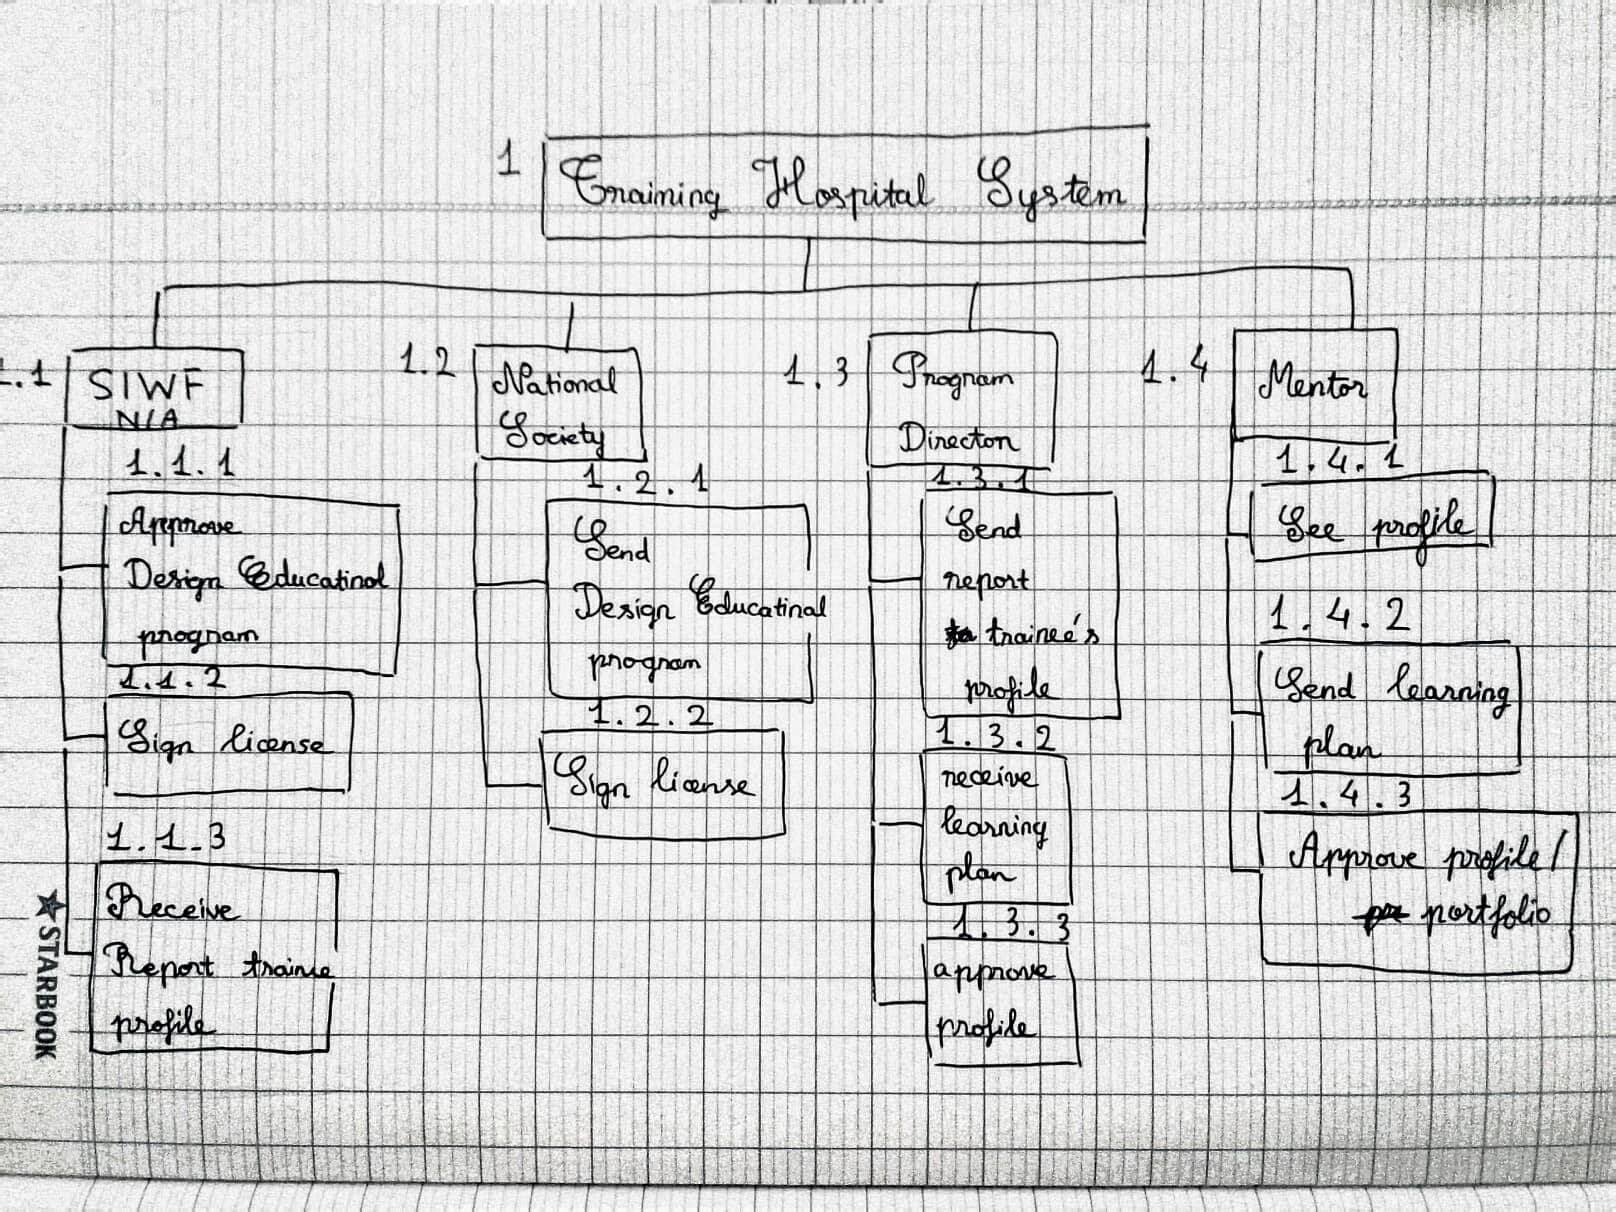 1
Training Hospital System
1.1
SIWF
N/A
1.1.1
Approve
Design Educatinol
program
1.1.2
Sign license
1.1.3
Receive
Report trainee
profile
1.2
National
Society
1.2.1
Send
Design Educatinal
program
1.2.2
Sign license
1.3
Program
Director
1.3.1
Send
report
trainee's
profile
1.3.2
receive
learning
plan
1.3.3
approve
profile
1.4
Mentor
1.4.1
See profile
1.4.2
Send learning
plan
1.4.3
Approve profile/
portfolio
★STARBOOK